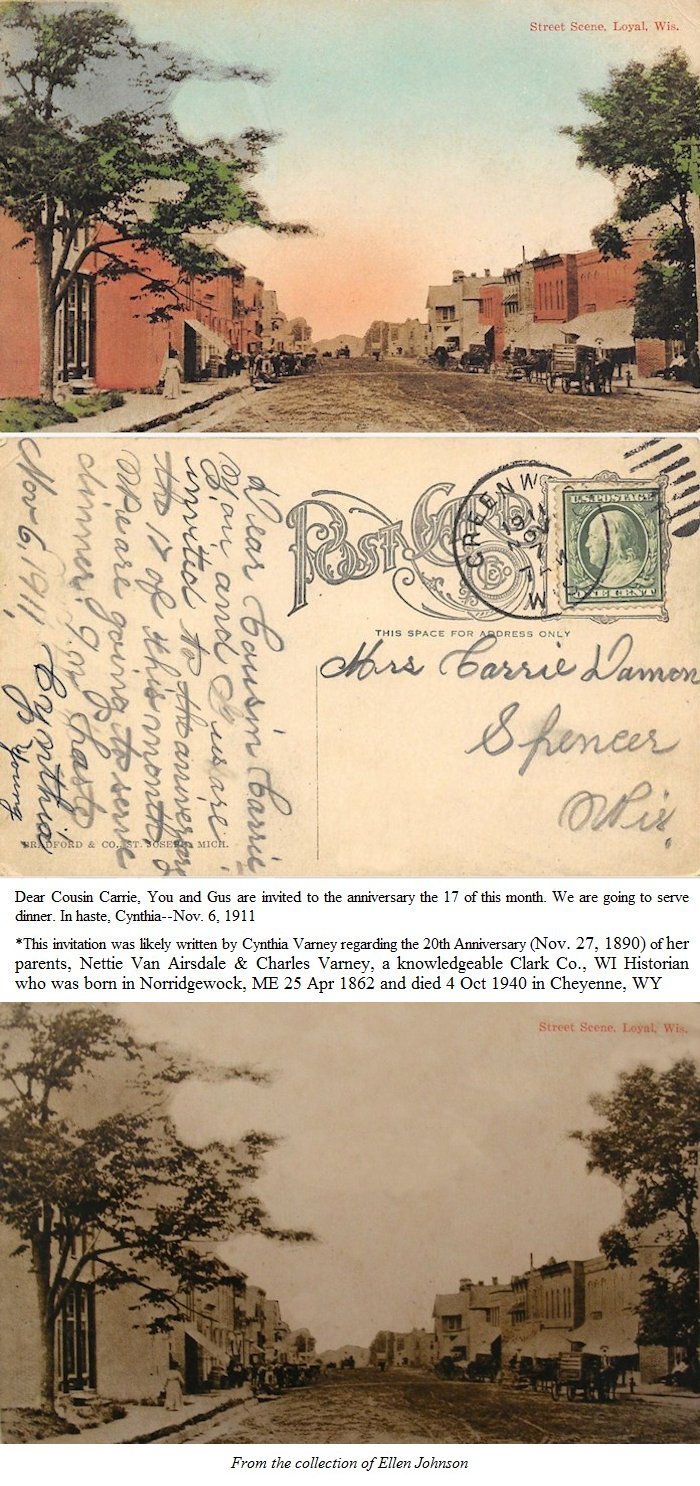 Street Scene, Loyal, Wis.
Dear Cousin Carrie
You and Gus are
invited to the aniversary
the 17 of this month
We are going to serve
dinner. In haste
Nov 6, 1911, Cynthia
Young
POST CARD
GREENW
1911
WIS
U.S. POSTAGE
ONE CENT
THIS SPACE FOR ADDRESS ONLY
Mrs Carrie Damon
Spencer
Wis.
BRADFORD & CO., ST. JOSEPH, MICH.
Dear Cousin Carrie, You and Gus are invited to the anniversary the 17 of this month. We are going to serve
dinner. In haste, Cynthia--Nov. 6, 1911
*This invitation was likely written by Cynthia Varney regarding the 20th Anniversary (Nov. 27, 1890) of her
parents, Nettie Van Airsdale & Charles Varney, a knowledgeable Clark Co., WI Historian
who was born in Norridgewock, ME 25 Apr 1862 and died 4 Oct 1940 in Cheyenne, WY
Street Scene, Loyal, Wis.
From the collection of Ellen Johnson